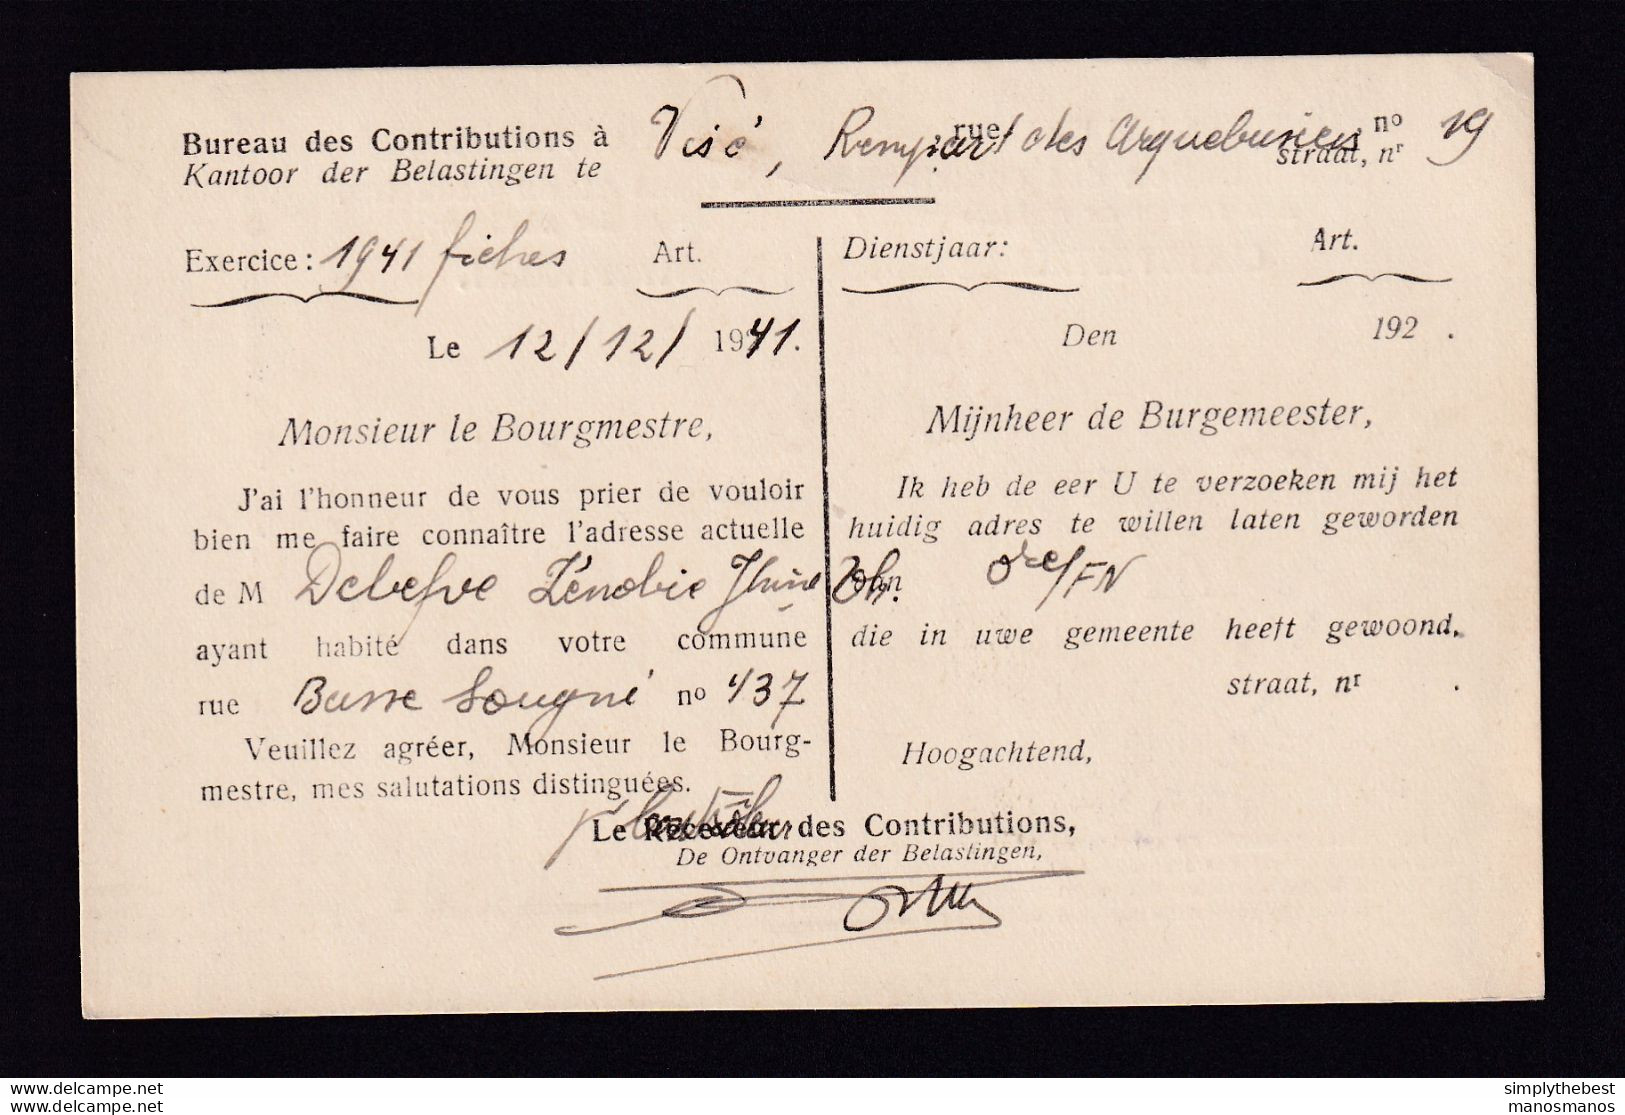 Bureau des Contributions à Visé, Rempart des Arquebusiers rue no 19
Kantoor der Belastingen te straat, nr
Exercice : 1941 fiches Art.
Le 12/12/ 1941.
Monsieur le Bourgmestre,
J'ai l'honneur de vous prier de vouloir
bien me faire connaître l'adresse actuelle
de M Zénobie
ayant habité dans votre commune
rue Basse Sougné no 437
Veuillez agréer, Monsieur le Bourg-
mestre, mes salutations distinguées.
Dienstjaar: Art.
Den 192 .
Mijnheer de Burgemeester,
Ik heb de eer U te verzoeken mij het
huidig adres te willen laten geworden
van
die in uwe gemeente heeft gewoond,
straat, nr .
Hoogachtend,
Le Receveur des Contributions,
De Ontvanger der Belastingen,
delcampe.net
delcampe.net
simplythebest
manosmanos